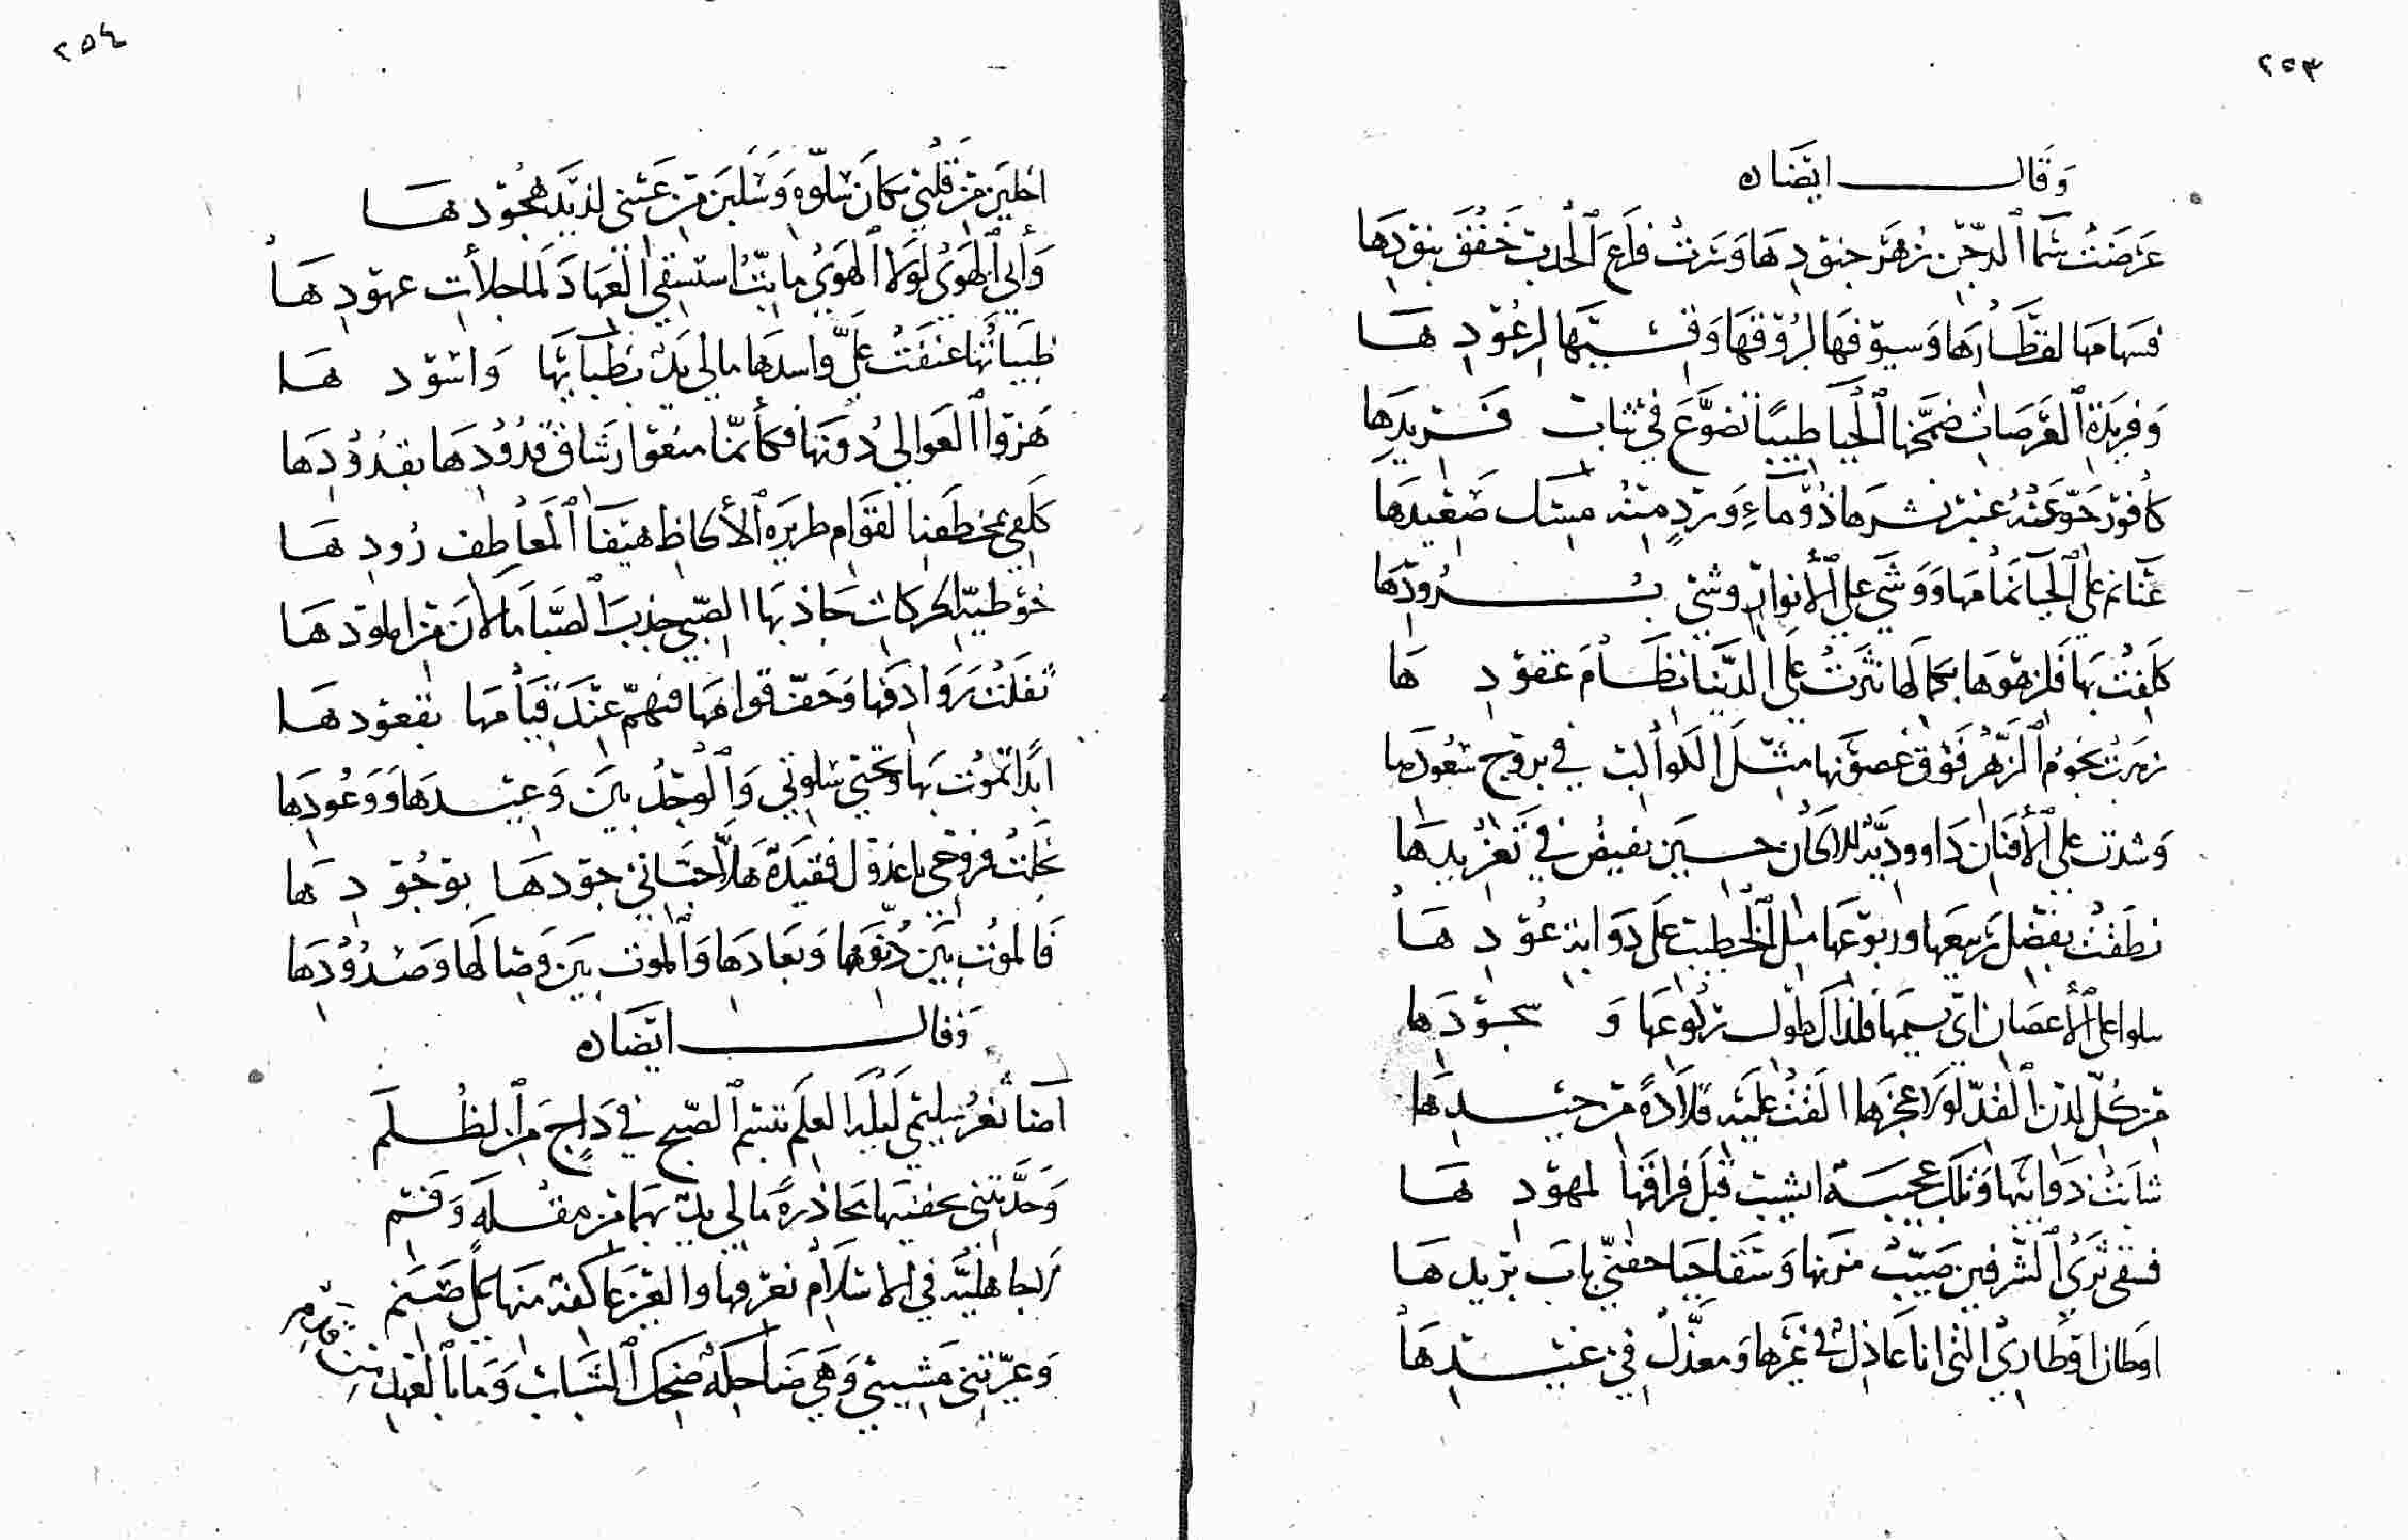 ٢٥٣
وَقَال ايضًا
عرَضَتْ سَمَا الدجن زهر جنودها وَسَرت فراع الجدب خفق بنودها
فسهامها لقطارها وَسيوفها لبروقها وَقسيها لرعودها
وَفريدة العرصات ضمخها الحيا طيبًا تضوّع في ثياب فريدها
كافور جوّ عنه عنبر نشرها ذو ماءِ وردٍ منه مسك صعيدها
غنا نم على الحيا نمامها وَوَشي على الأنوار وشي برودها
كلفت بها فلزهوها بكمالها نثرت على الدنيا نظام عقودها
زهرت نجوم الزهر فوق غصونها مثل الكواكب في بروج سعودها
وَشدت على الأفنان داووديّة الالحان حسين يفيض في تغريدها
نطقت بفضل ربيعها وربوعها مثل الخطيب على ذوابة عودها
سلوا على الأغصان اي بسيمها فلذاك طول ركوعها وَ سجودها
من كلّ لدن القدّ لولا عجزها القت عليه قلادةً من جيدها
شابت ذوايبها وتلك عجيبة ايشيب قبل فراقها لمهودها
فسقى ثرى الشرفين صيّب مزنها وَسقا حيا جفنيّ باب بريدها
اوطان اوطاري التي انا عاذل في غيرها وَمعذّل في غيدها
٢٥٤
اخلين من قلبي مكان سلوّه وَسلبن من عيني لذيذ هجودها
وَأبي الهوى لولا الهوى ما بتّ استسقي العهاد لماحلات عهودها
ظبياتها عنفت عليّ واسدها مالي يد بظبائها وَاسودها
هزوا العوالي دونها فكأنما منعوا رشاق قدودها بقدودها
كلفي بخطي القوام طريرة الألحاظ هيفا المعاطف رُودها
خوطيّة الحركات جاذبها الصبى جذب الصبا مالان من املودها
ثقلت روادفها وَخفّ قوامها فنهمّ عند قيامها بقعودها
ابدًا تموت بها وتحيى سلوتي وَالوجد بين وَعيدها وَوعودها
بخلت فروحي يا عذول فقيدة هلا حباني جودها بوجودها
فالموت بين دنوّها وبعادها وَالموت بين وصالها وَصدودها
وَقال ايضًا
آضا ثغر سليمى ليلة العلم تبسم الصبح في داج من الظلم
وَحدّثتني بجفنيها محاذرةً مالي يد بهما من مقلة وَفم
الجاهليّة في الاسلام نعرفها والغر عاكفة منها على صنم
وَعيرتني مشيبي وَهي ضاحكة ضحك الشباب وَما بالعهد من قدم